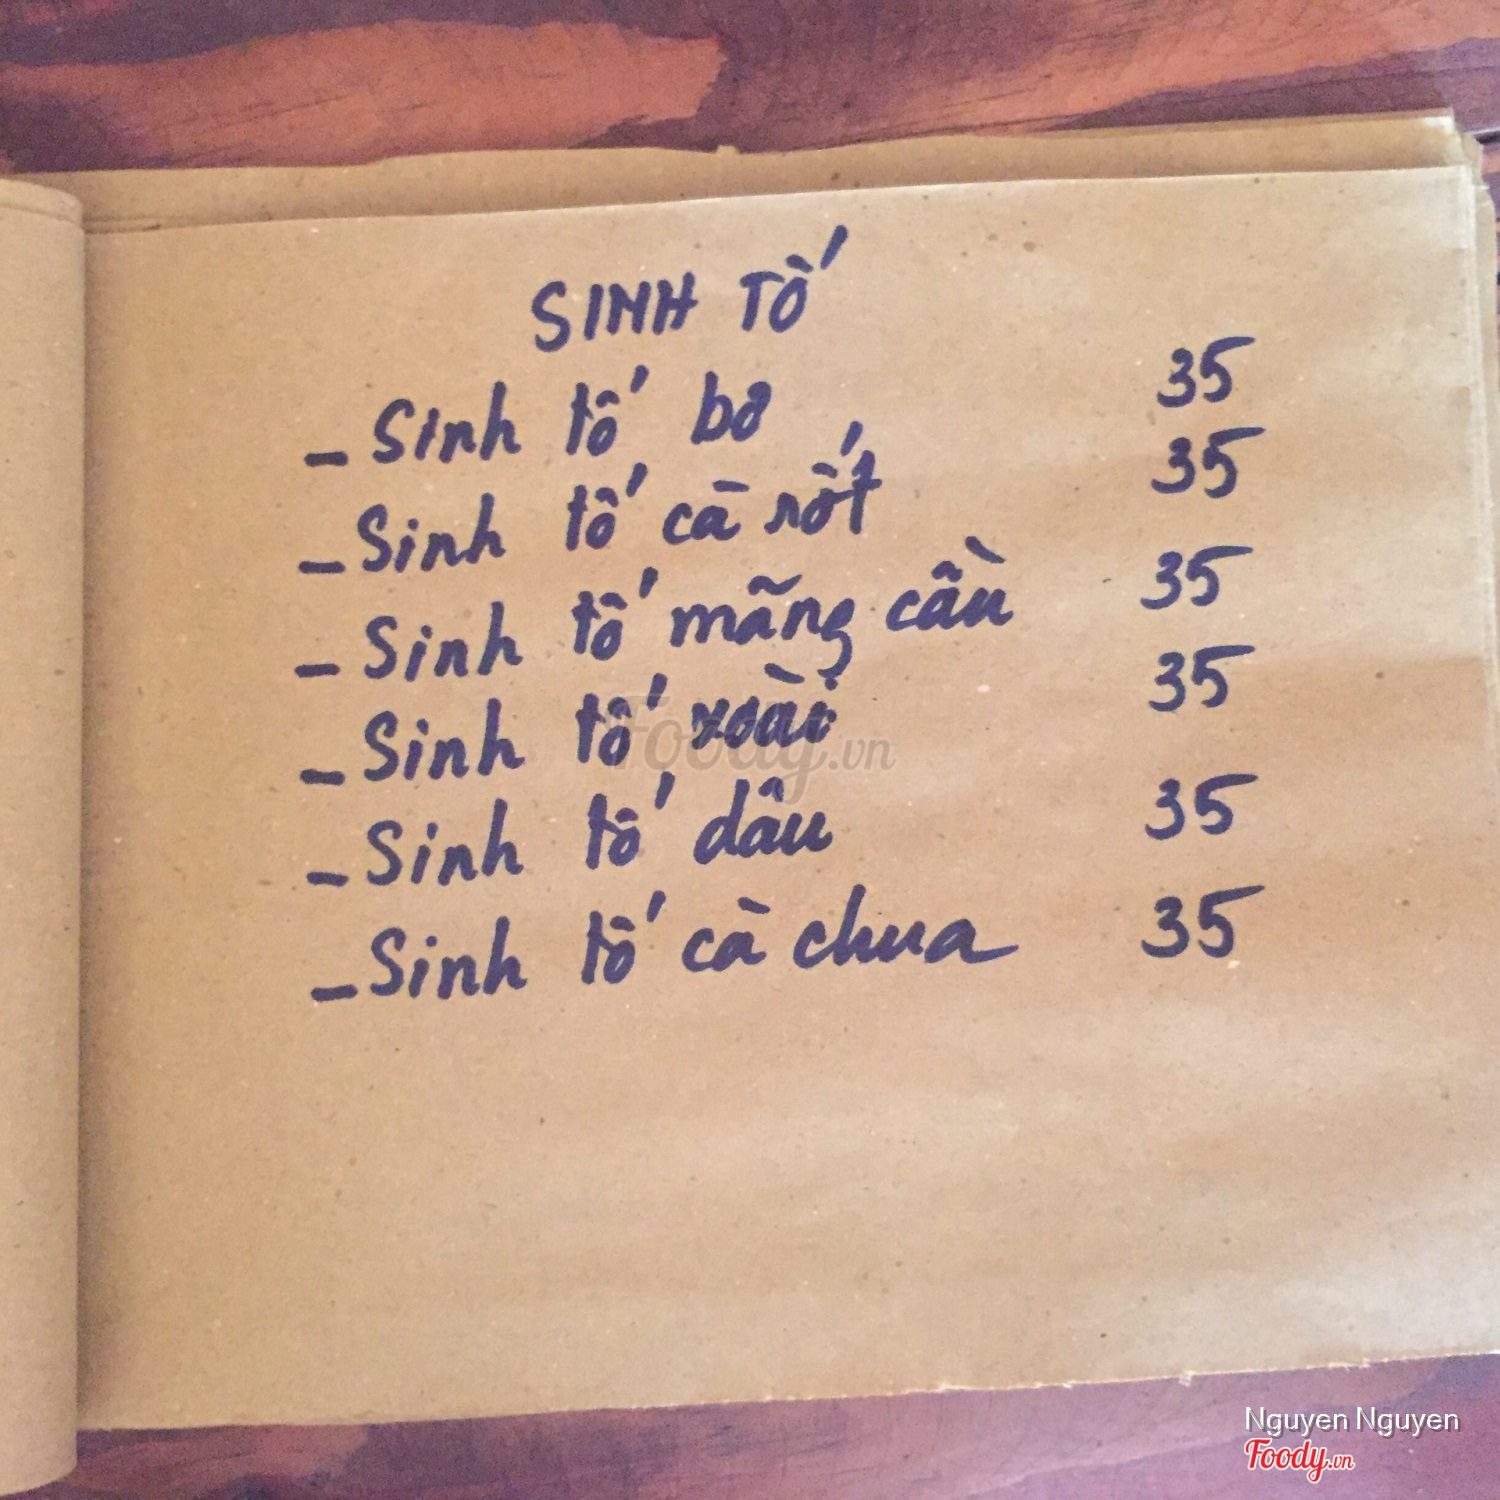 SINH TỐ
- Sinh tố bơ 35
- Sinh tố cà rốt 35
- Sinh tố mãng cầu 35
- Sinh tố xoài 35
- Sinh tố dâu 35
- Sinh tố cà chua 35
Foody.vn
Nguyen Nguyen
Foody.vn